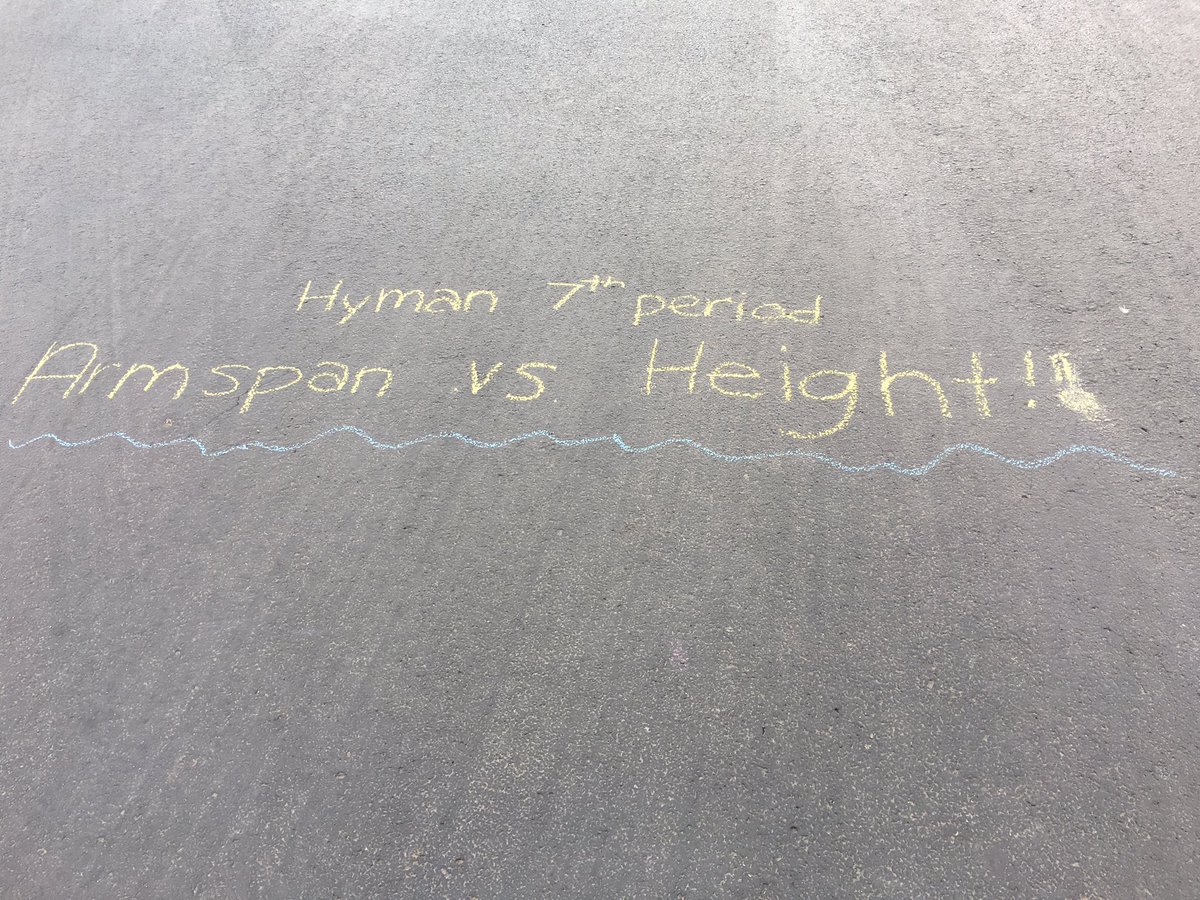 Hyman 7th period
Armspan vs. Height!